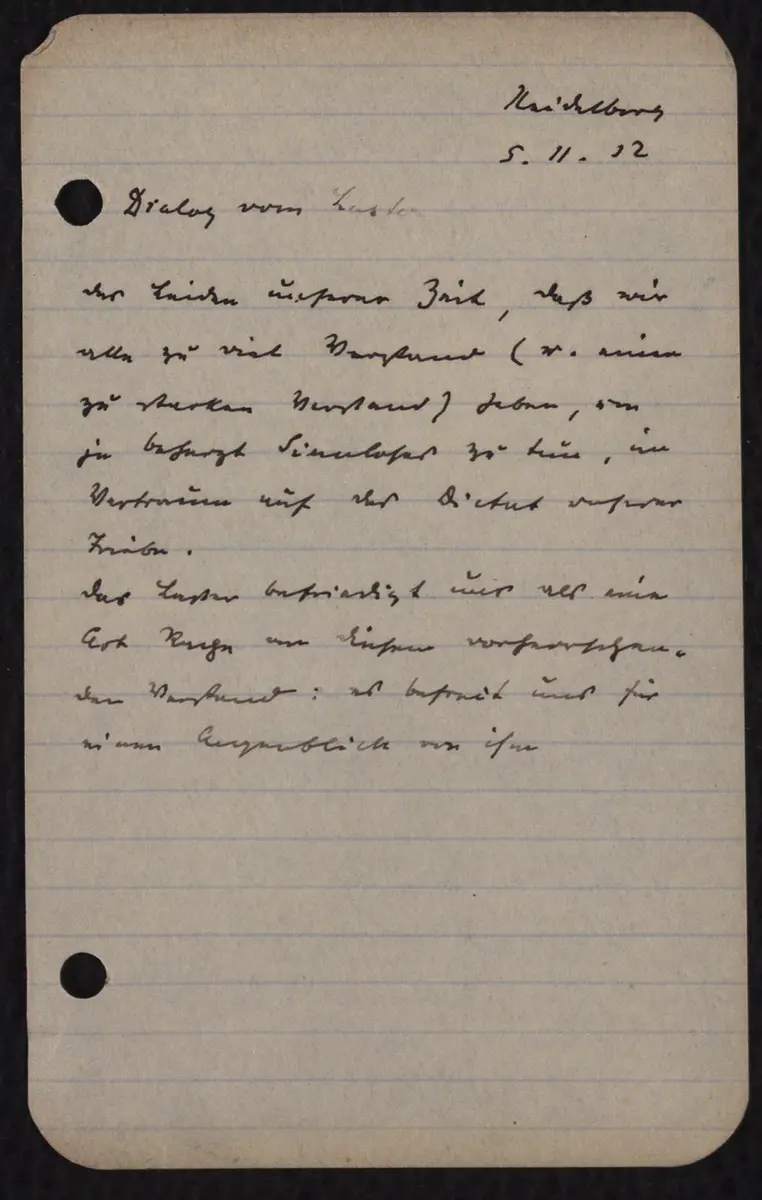 Heidelberg
5. 11. 32
Dialog vom Laster
das Leiden unserer Zeit, daß wir
alle zu viel Verstand (v. einen
zu starken Verstand) haben, um
je beherzt Sinnloses zu tun, im
Vertrauen auf das Dictat unserer
Triebe.
das Laster befriedigt uns als eine
Art Rache an diesem vorherrschen-
den Verstand: es befreit uns für
einen Augenblick von ihm